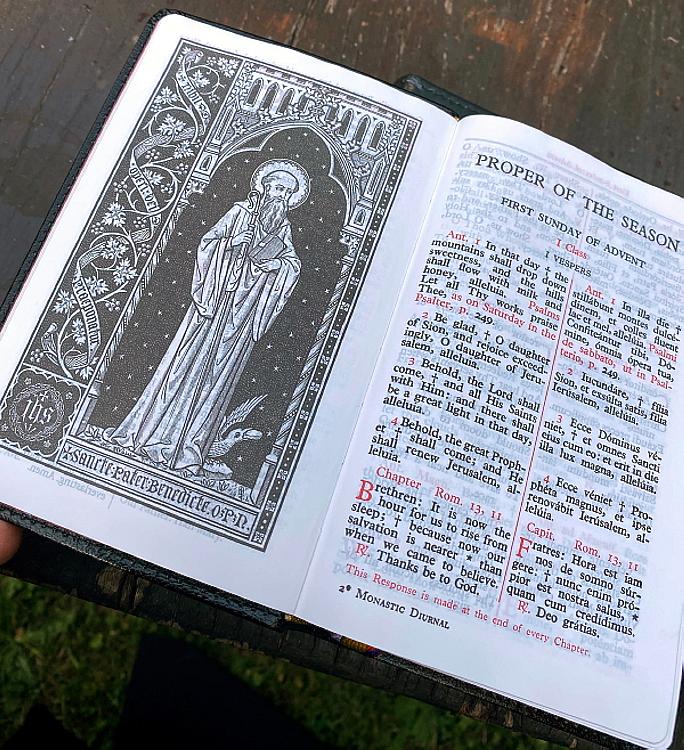 ihs
Sancte Pater Benedicte, o.p.n.
PROPER OF THE SEASON
FIRST SUNDAY OF ADVENT
I Class
I VESPERS
Ant. 1 In that day † the
mountains shall drop down
sweetness, and the hills
shall flow with milk and
honey, alleluia. Psalms
Let all Thy works praise
Thee, as on Saturday in the
Psalter, p. 249.
2 Be glad, † O daughter
of Sion, and rejoice exceed-
ingly, O daughter of Jeru-
salem, alleluia.
3 Behold, the Lord shall
come, † and all His Saints
with Him: and there shall
be a great light in that day,
alleluia.
4 Behold, the great Proph-
et † shall come; and He
shall renew Jerusalem, al-
leluia.
Chapter Rom. 13, 11
Brethren: It is now the
hour for us to rise from
sleep; † because now our
salvation is nearer * than
when we came to believe.
℟. Thanks be to God.
Ant. 1 In illa die †
stillábunt montes dulcé-
dinem, et colles fluent
lac et mel, allelúia. Psalmi
Confiteántur tibi, Dó-
mine, ómnia ópera tua,
de sabbato, ut in Psal-
terio, p. 249.
2 Iucundáre, † fília
Sion, et exsúlta satis, fília
Ierúsalem, allelúia.
3 Ecce Dóminus vé-
niet, † et omnes Sancti
eius cum eo: et erit in die
illa lux magna, allelúia.
4 Ecce véniet † Pro-
phéta magnus, et ipse
renovábit Ierúsalem, al-
lelúia.
Capit. Rom. 13, 11
Fratres: Hora est iam
nos de somno súr-
gere: † nunc enim pró-
pior est nostra salus, *
quam cum credídimus.
℟. Deo grátias.
This Response is made at the end of every Chapter.
2* MONASTIC DIURNAL